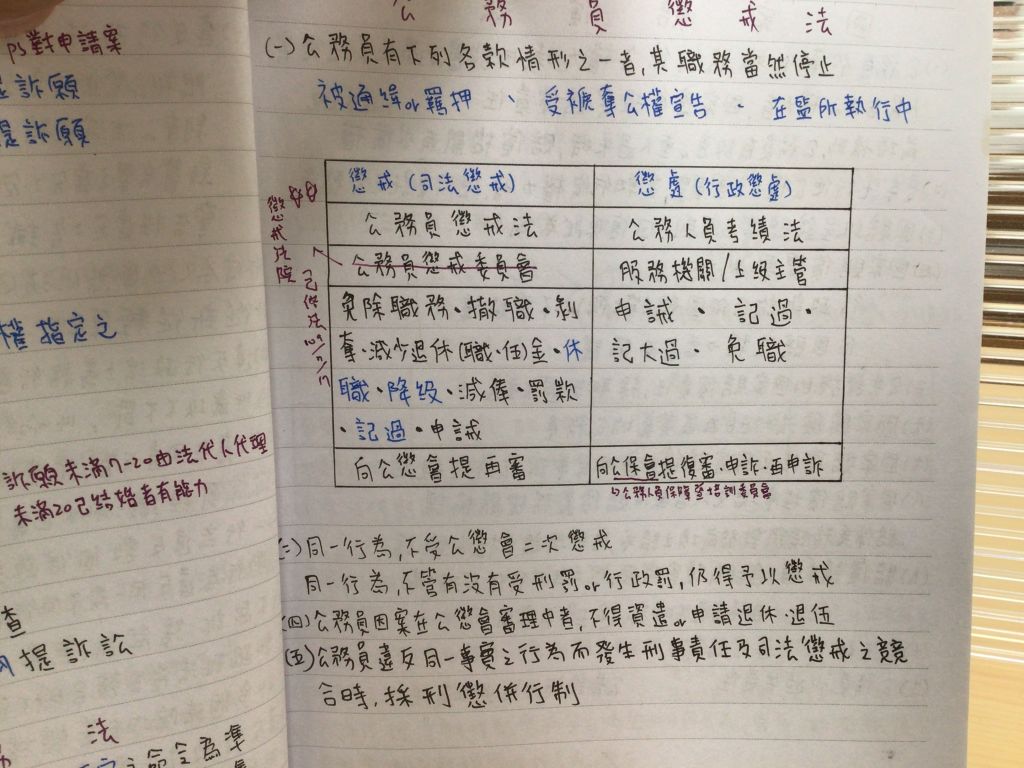 ps對申請案
訴願
訴願
權指定之
訴願未滿7-20由法代人代理
未滿20已結婚者有能力
查
提訴訟
法
命令為準
公務員懲戒法
(一)公務員有下列各款情形之一者,其職務當然停止
被通緝or羈押、受褫奪公權宣告、在監所執行中
懲戒(司法懲戒) 懲處(行政懲處)
公務員懲戒法 公務人員考績法
公務員懲戒委員會 服務機關/上級主管
懲戒法院
已修法109/7/17
免除職務·撤職·剝 申誡·記過·
奪·減少退休(職·伍)金·休 記大過·免職
職·降級·減俸·罰款
·記過·申誡
向公懲會提再審 向公保會提復審·申訴·再申訴
公務人員保障暨培訓委員會
(三)同一行為,不受公懲會二次懲戒
同一行為,不管有沒有受刑罰or行政罰,仍得予以懲戒
(四)公務員因案在公懲會審理中者,不得資遣or申請退休·退伍
(五)公務員違反同一事實之行為而發生刑事責任及司法懲戒之競
合時,採刑懲併行制